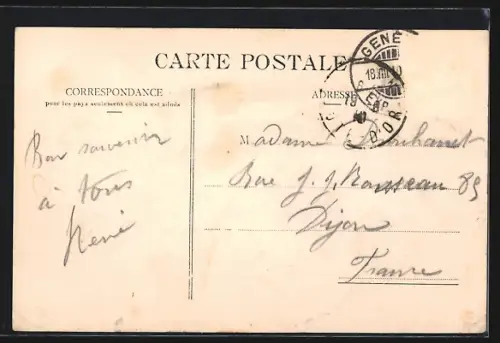 CARTE POSTALE
CORRESPONDANCE
pour les pays seulement où cela est admis
ADRESSE
GENÈ
18.VIII.10
D'OR
Bon souvenir
à tous
René
Madame
Rue J. J. Rousseau 85
Dijon
France